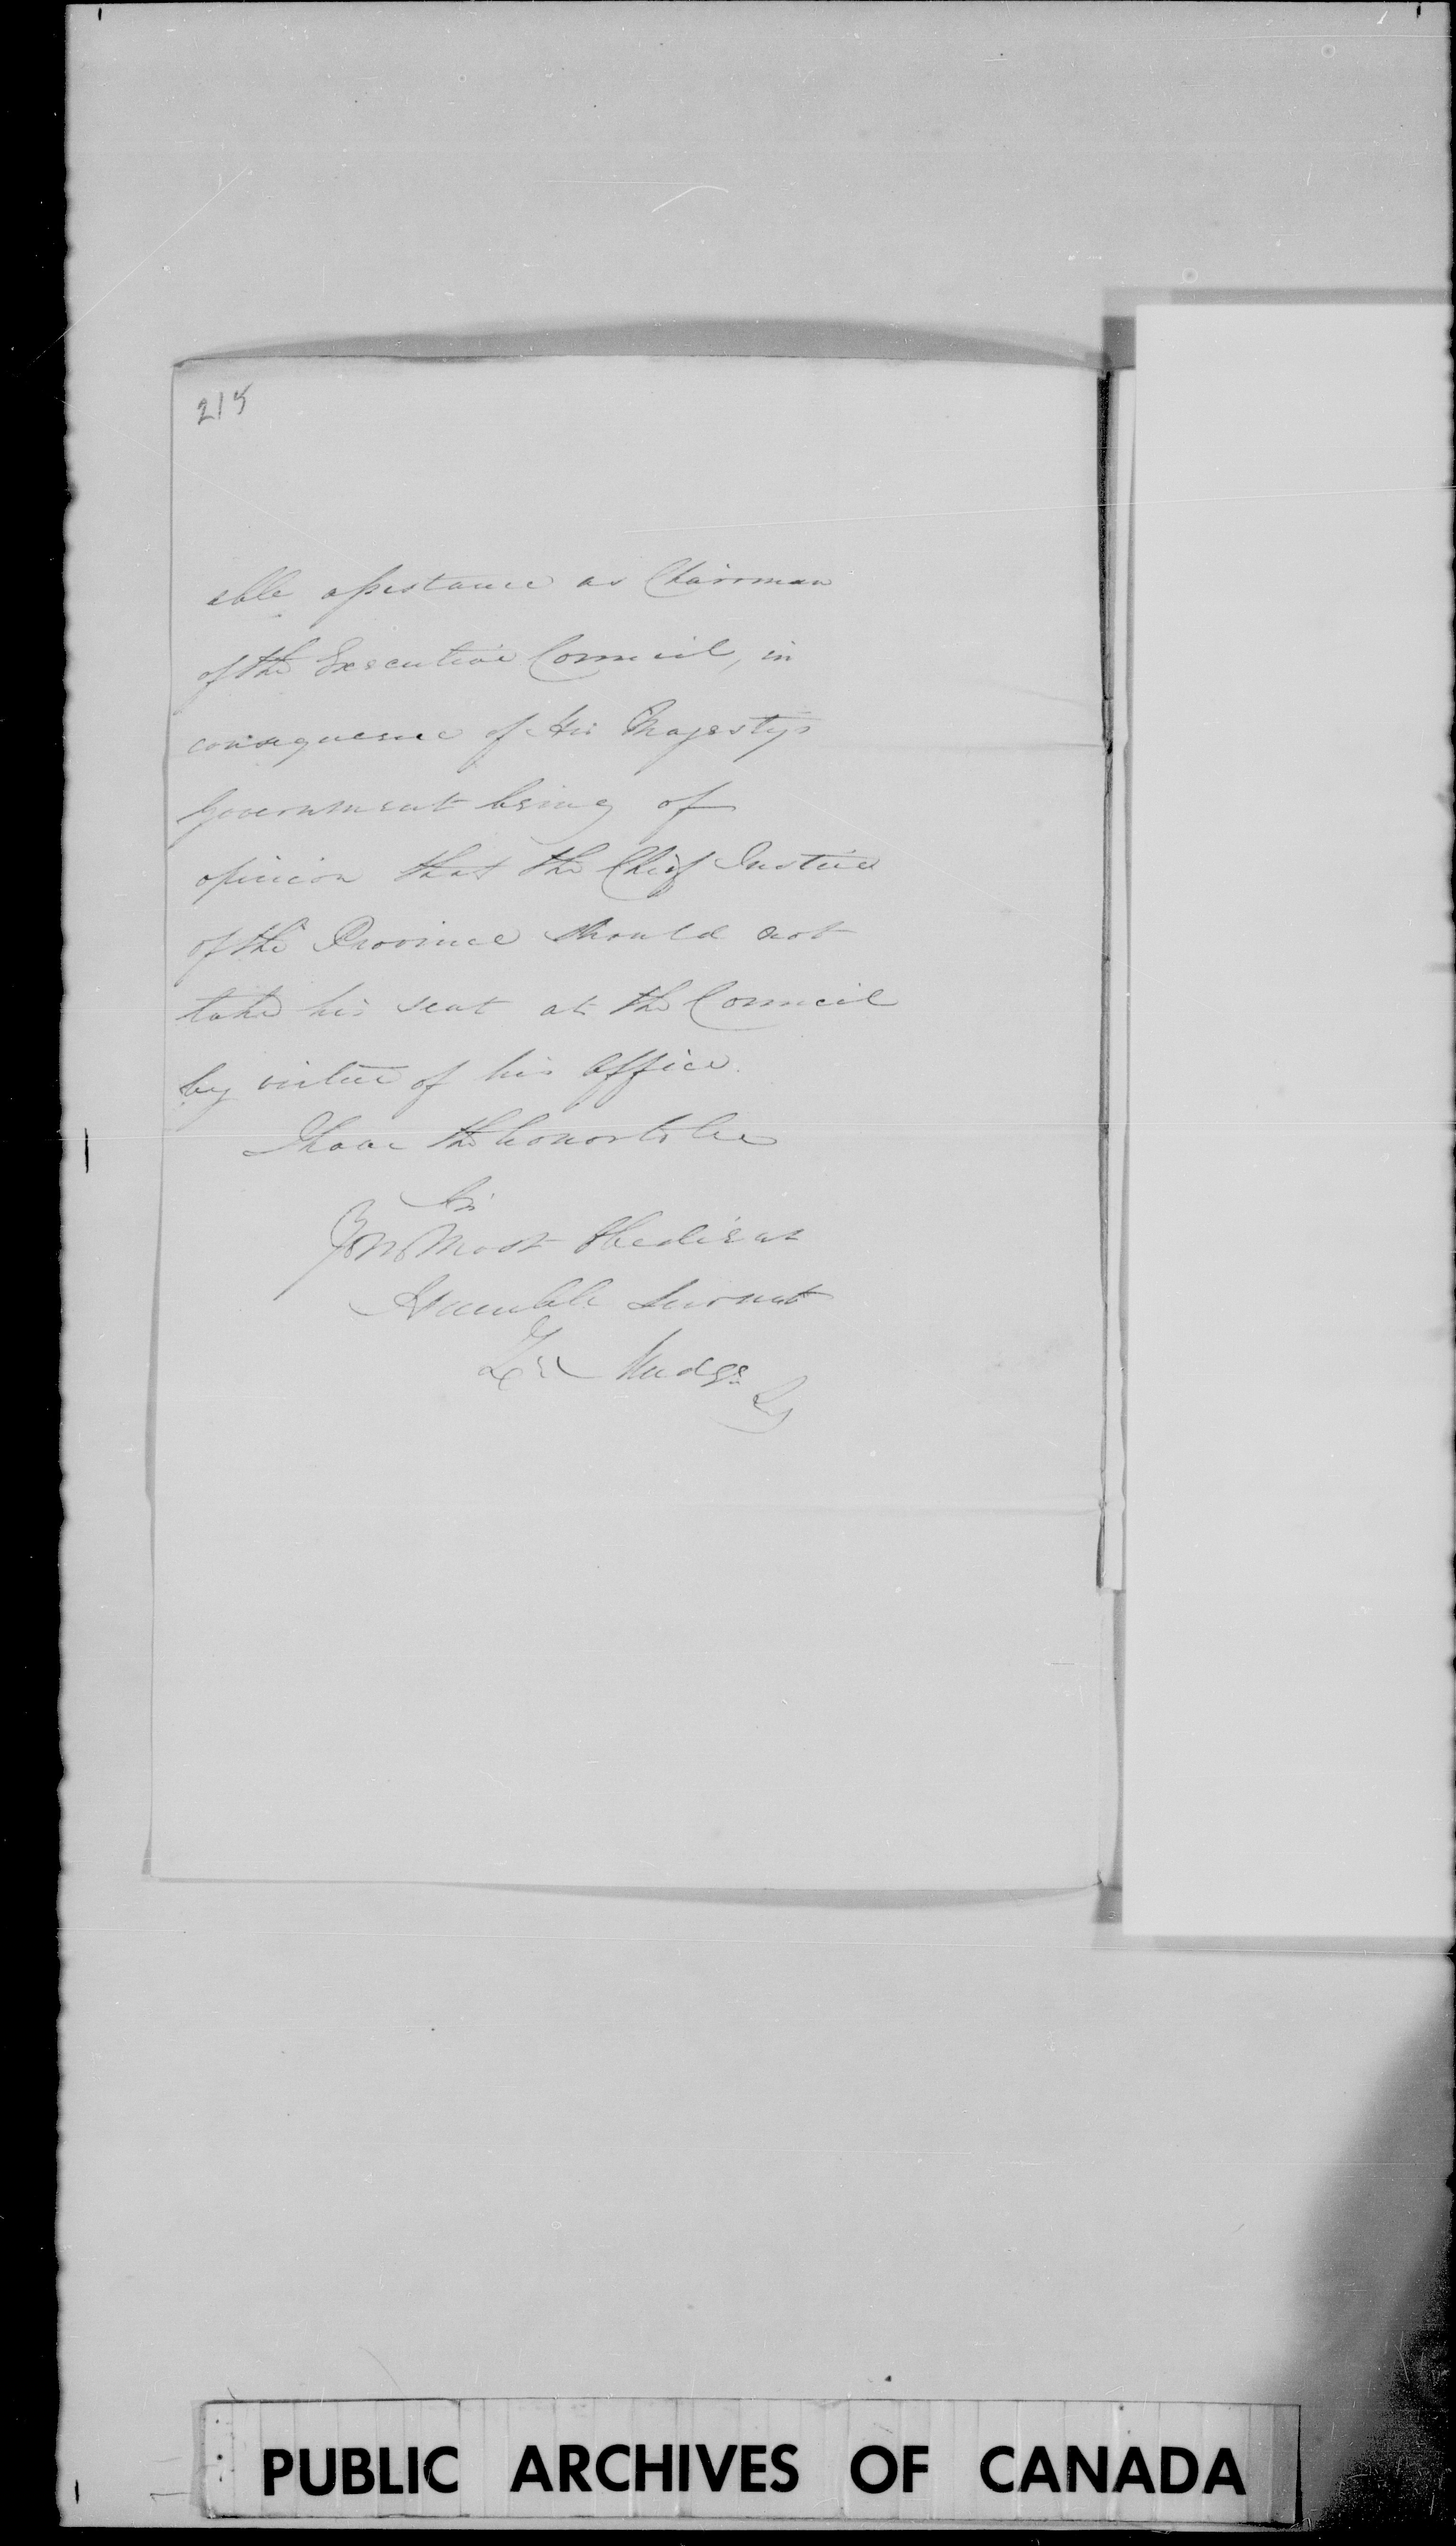 215
able assistance as Chairman
of the Executive Council, in
consequence of His Majestys
Government being of
opinion that the Chief Justice
of the Province should not
take his seat at the Council
by virtue of his Office.
I have the honor to be
Sir
Your Most Obedient
Humble Servant
Z. Mudge
PUBLIC ARCHIVES OF CANADA